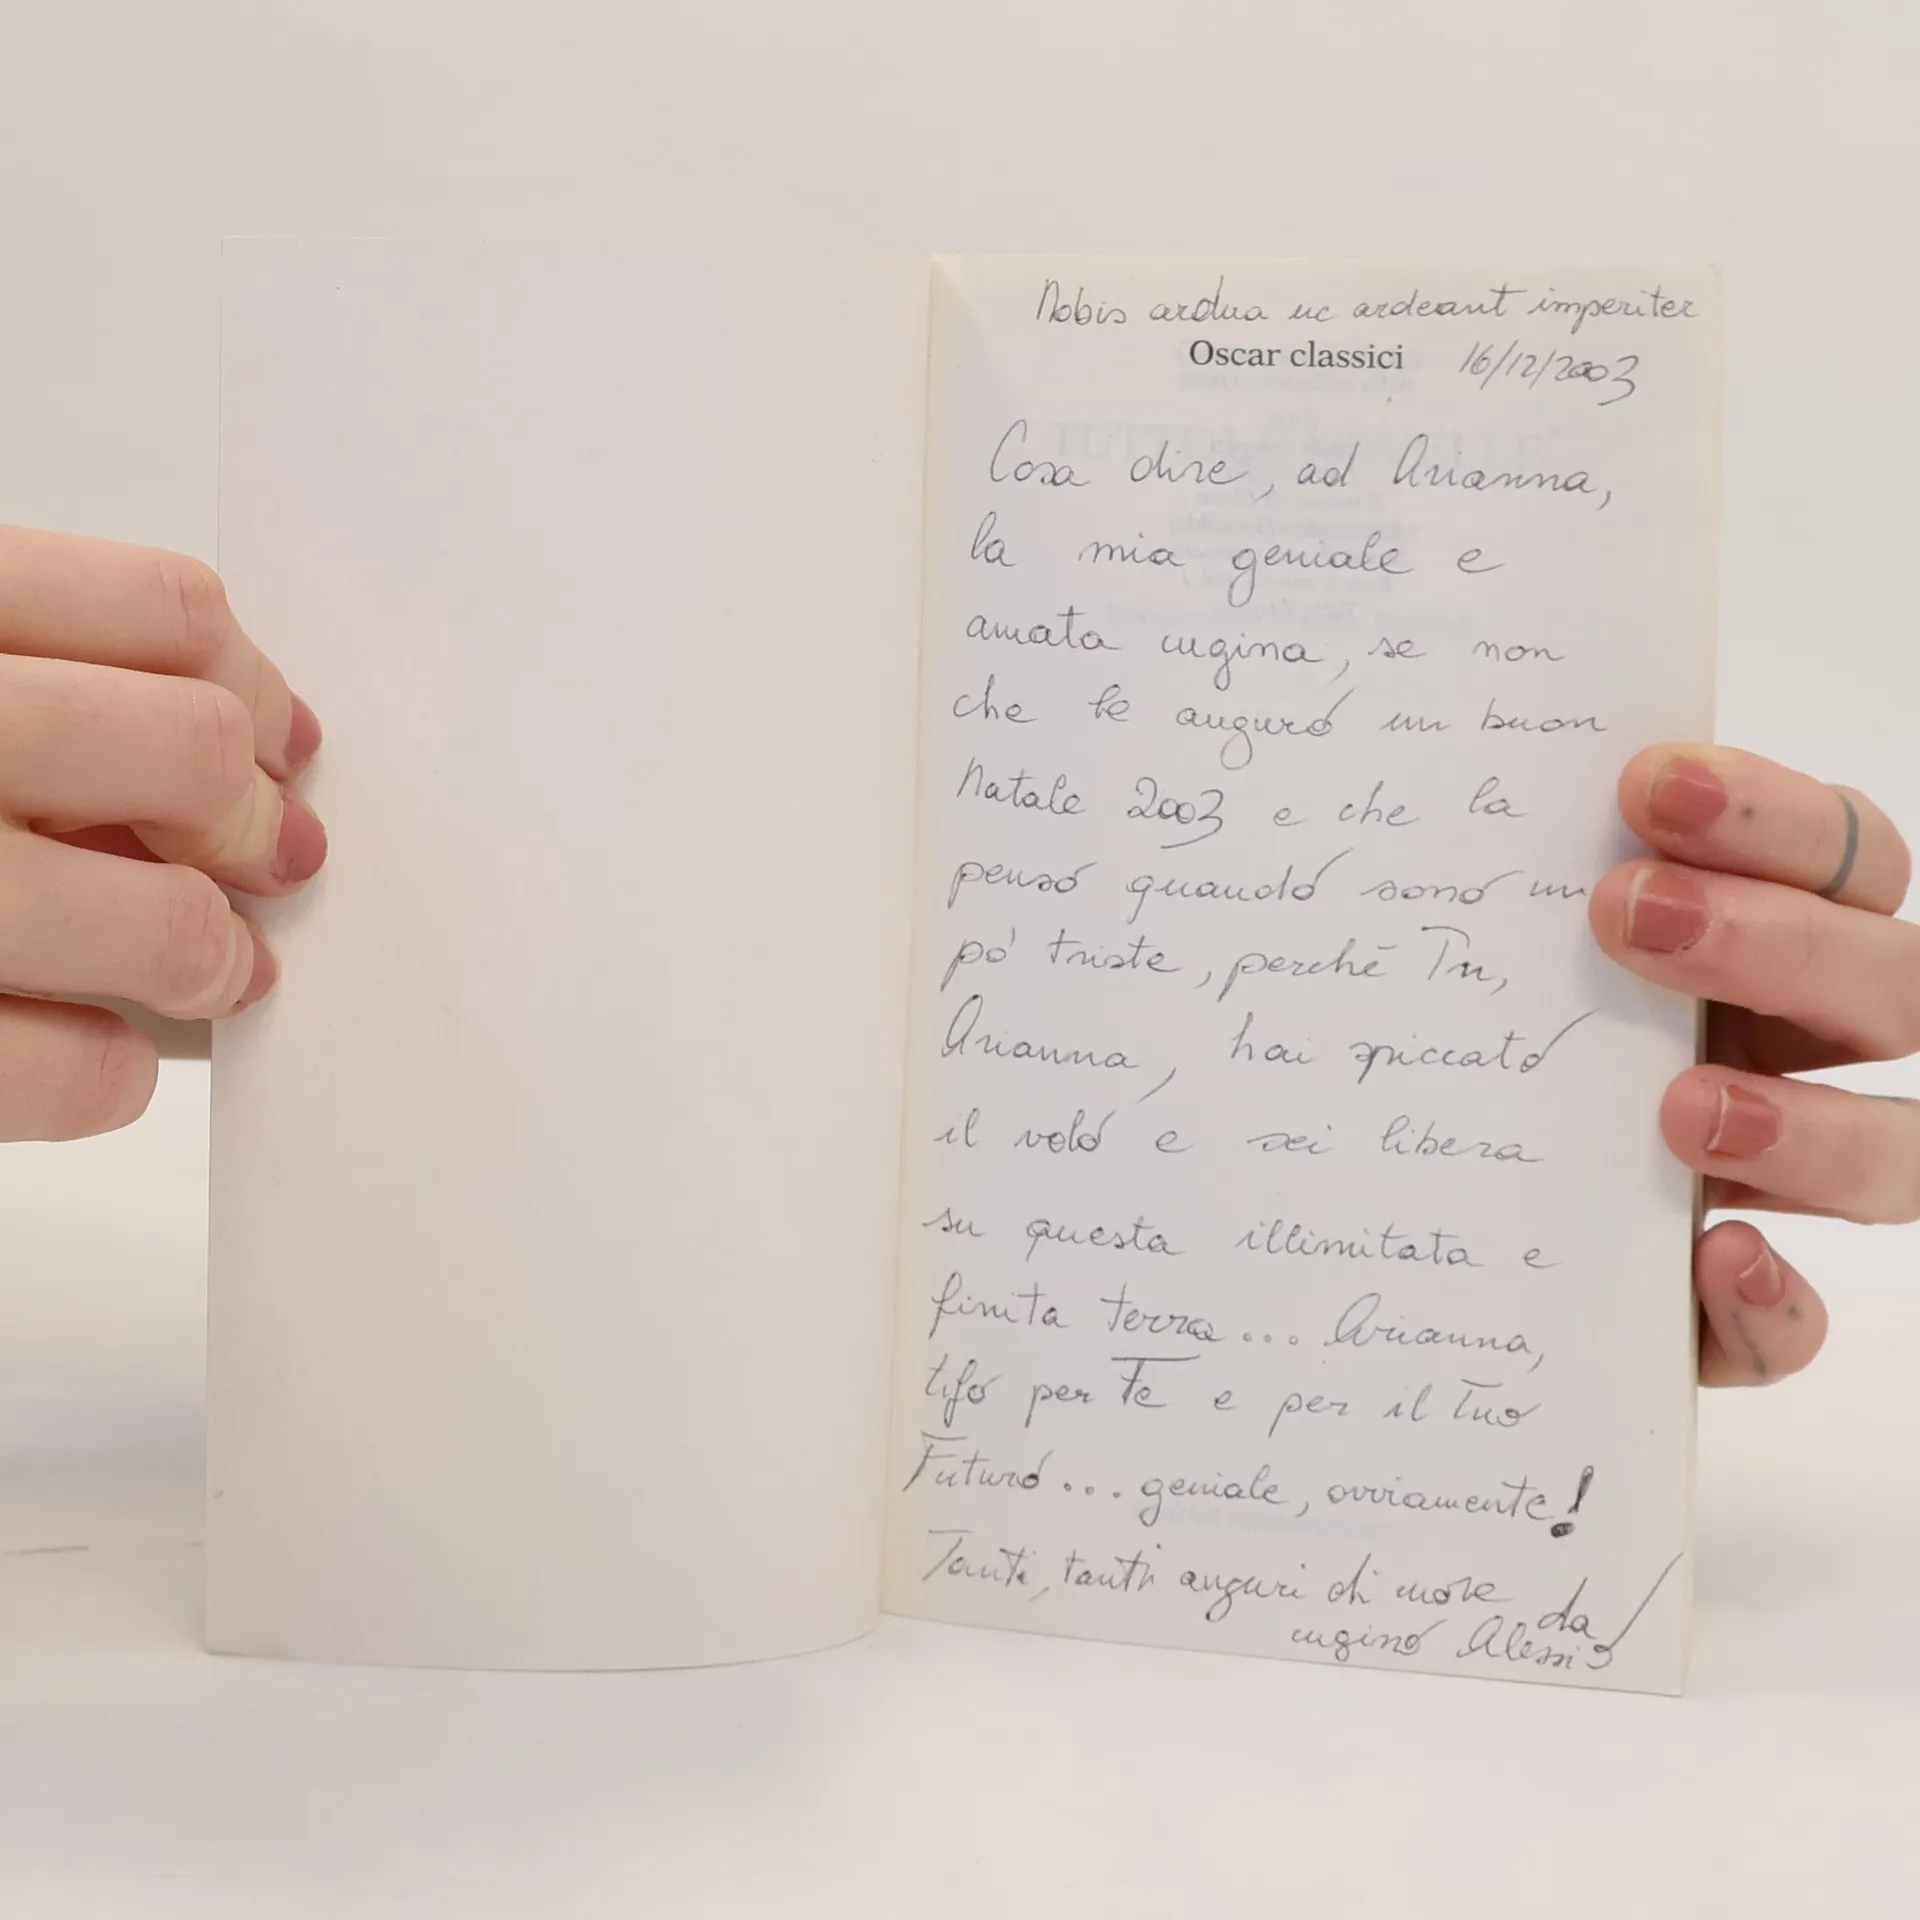 Nobis ardua uc ardeant imperiter
Oscar classici 16/12/2003
Cosa dire, ad Arianna,
la mia geniale e
amata cugina, se non
che le auguro un buon
Natale 2003 e che la
penso quando sono un
po' triste, perché Tu,
Arianna, hai spiccato
il volo e sei libera
su questa illimitata e
finita terra... Arianna,
tifo per Te e per il Tuo
Futuro... geniale, ovviamente!
Tanti, tanti auguri di cuore da
cugino Alessio